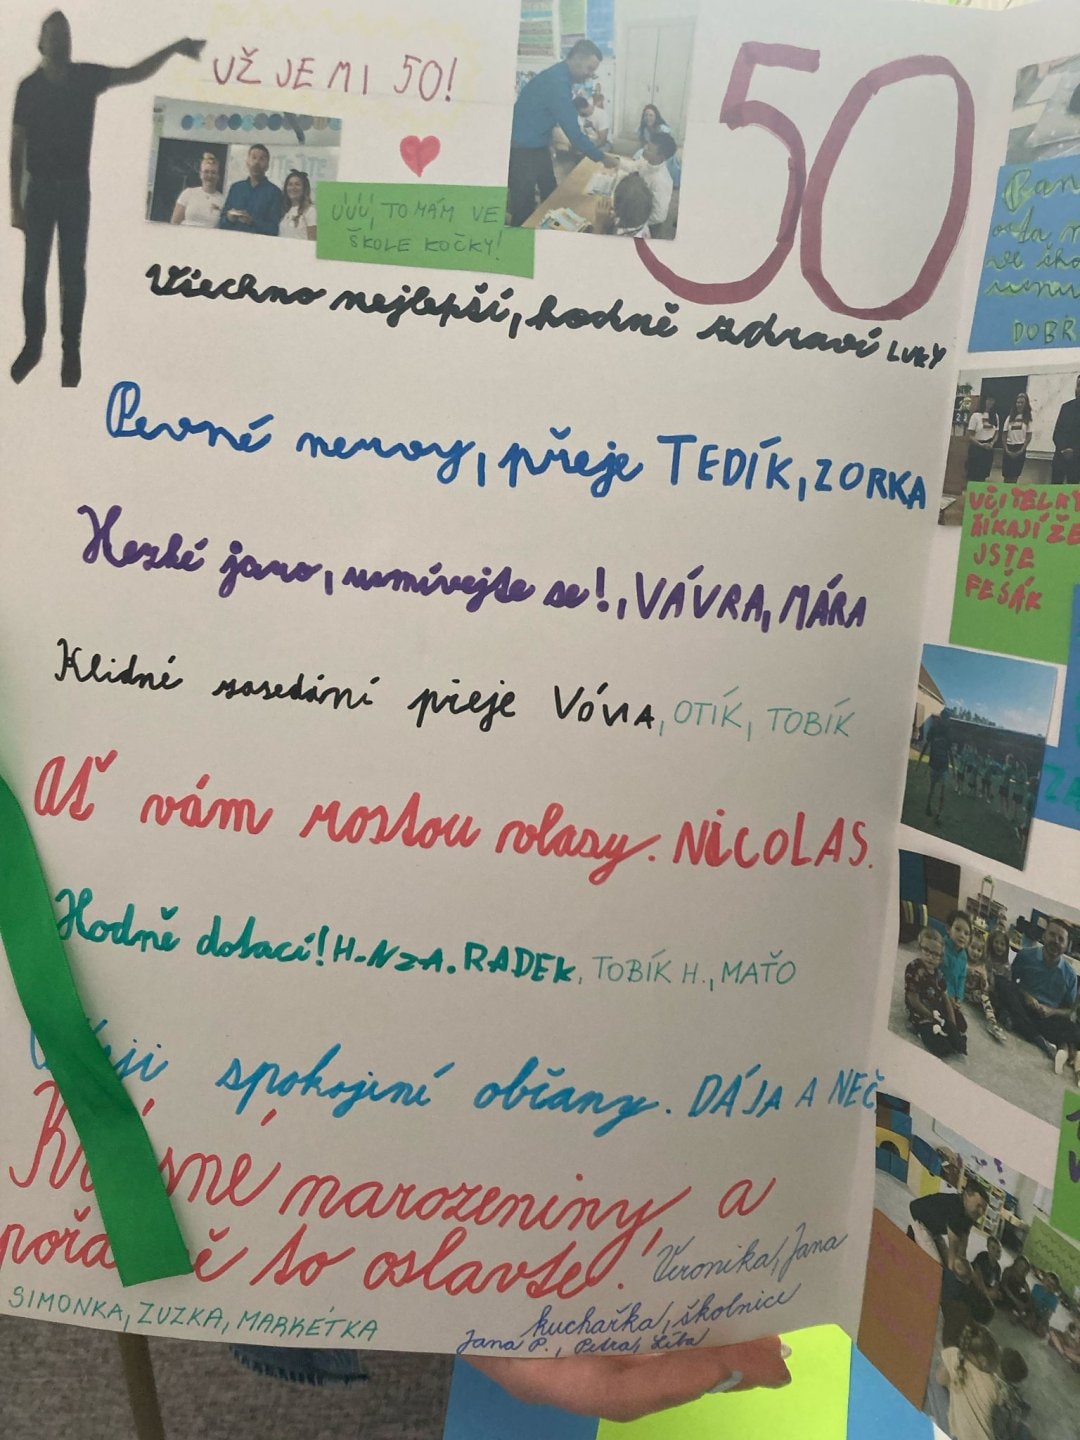 UŽ JE MI 50!
50
ÚÚÚ, TO MÁM VE
ŠKOLE KOČKY!
Všechno nejlepší, hodně zdraví LUKY
Pevné nervy, přeje TEDÍK, ZORKA
Hezké jaro, usmívejte se!, VÁVRA, MÁRA
Klidné zasedání přeje VÓVA, OTÍK, TOBÍK
Ať vám rostou vlasy. NICOLAS.
Hodně dotací! RADEK, TOBÍK H., MAŤO
spokojení občany. DÁJA A
narozeniny, a
to oslavte! Veronika, Jana
SIMONKA, ZUZKA, MARKÉTKA
kuchařka, školnice
Jana P., Petra, Líba
UČITELKY
ŘÍKAJÍ ŽE
JSTE
FEŠÁK